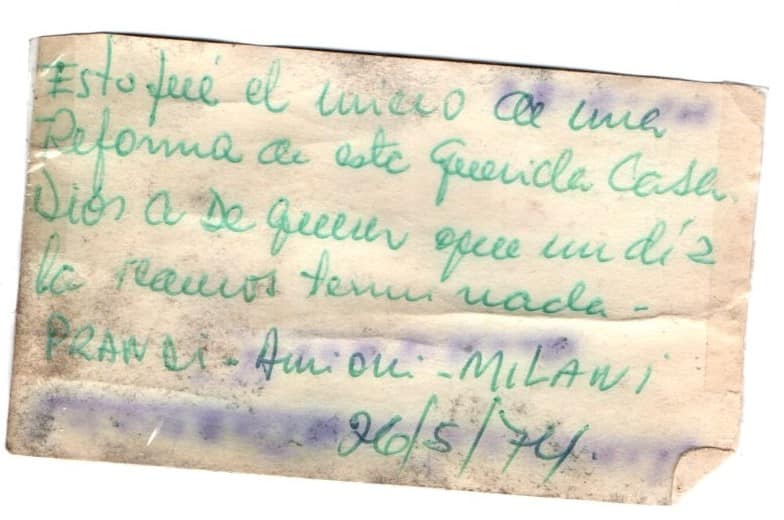 Esto fué el inicio de una
Reforma de esta Querida Casa.
Dios a De querer que un día
la veamos terminada -
PRANDI - Amioni - MILANI
26/5/74.